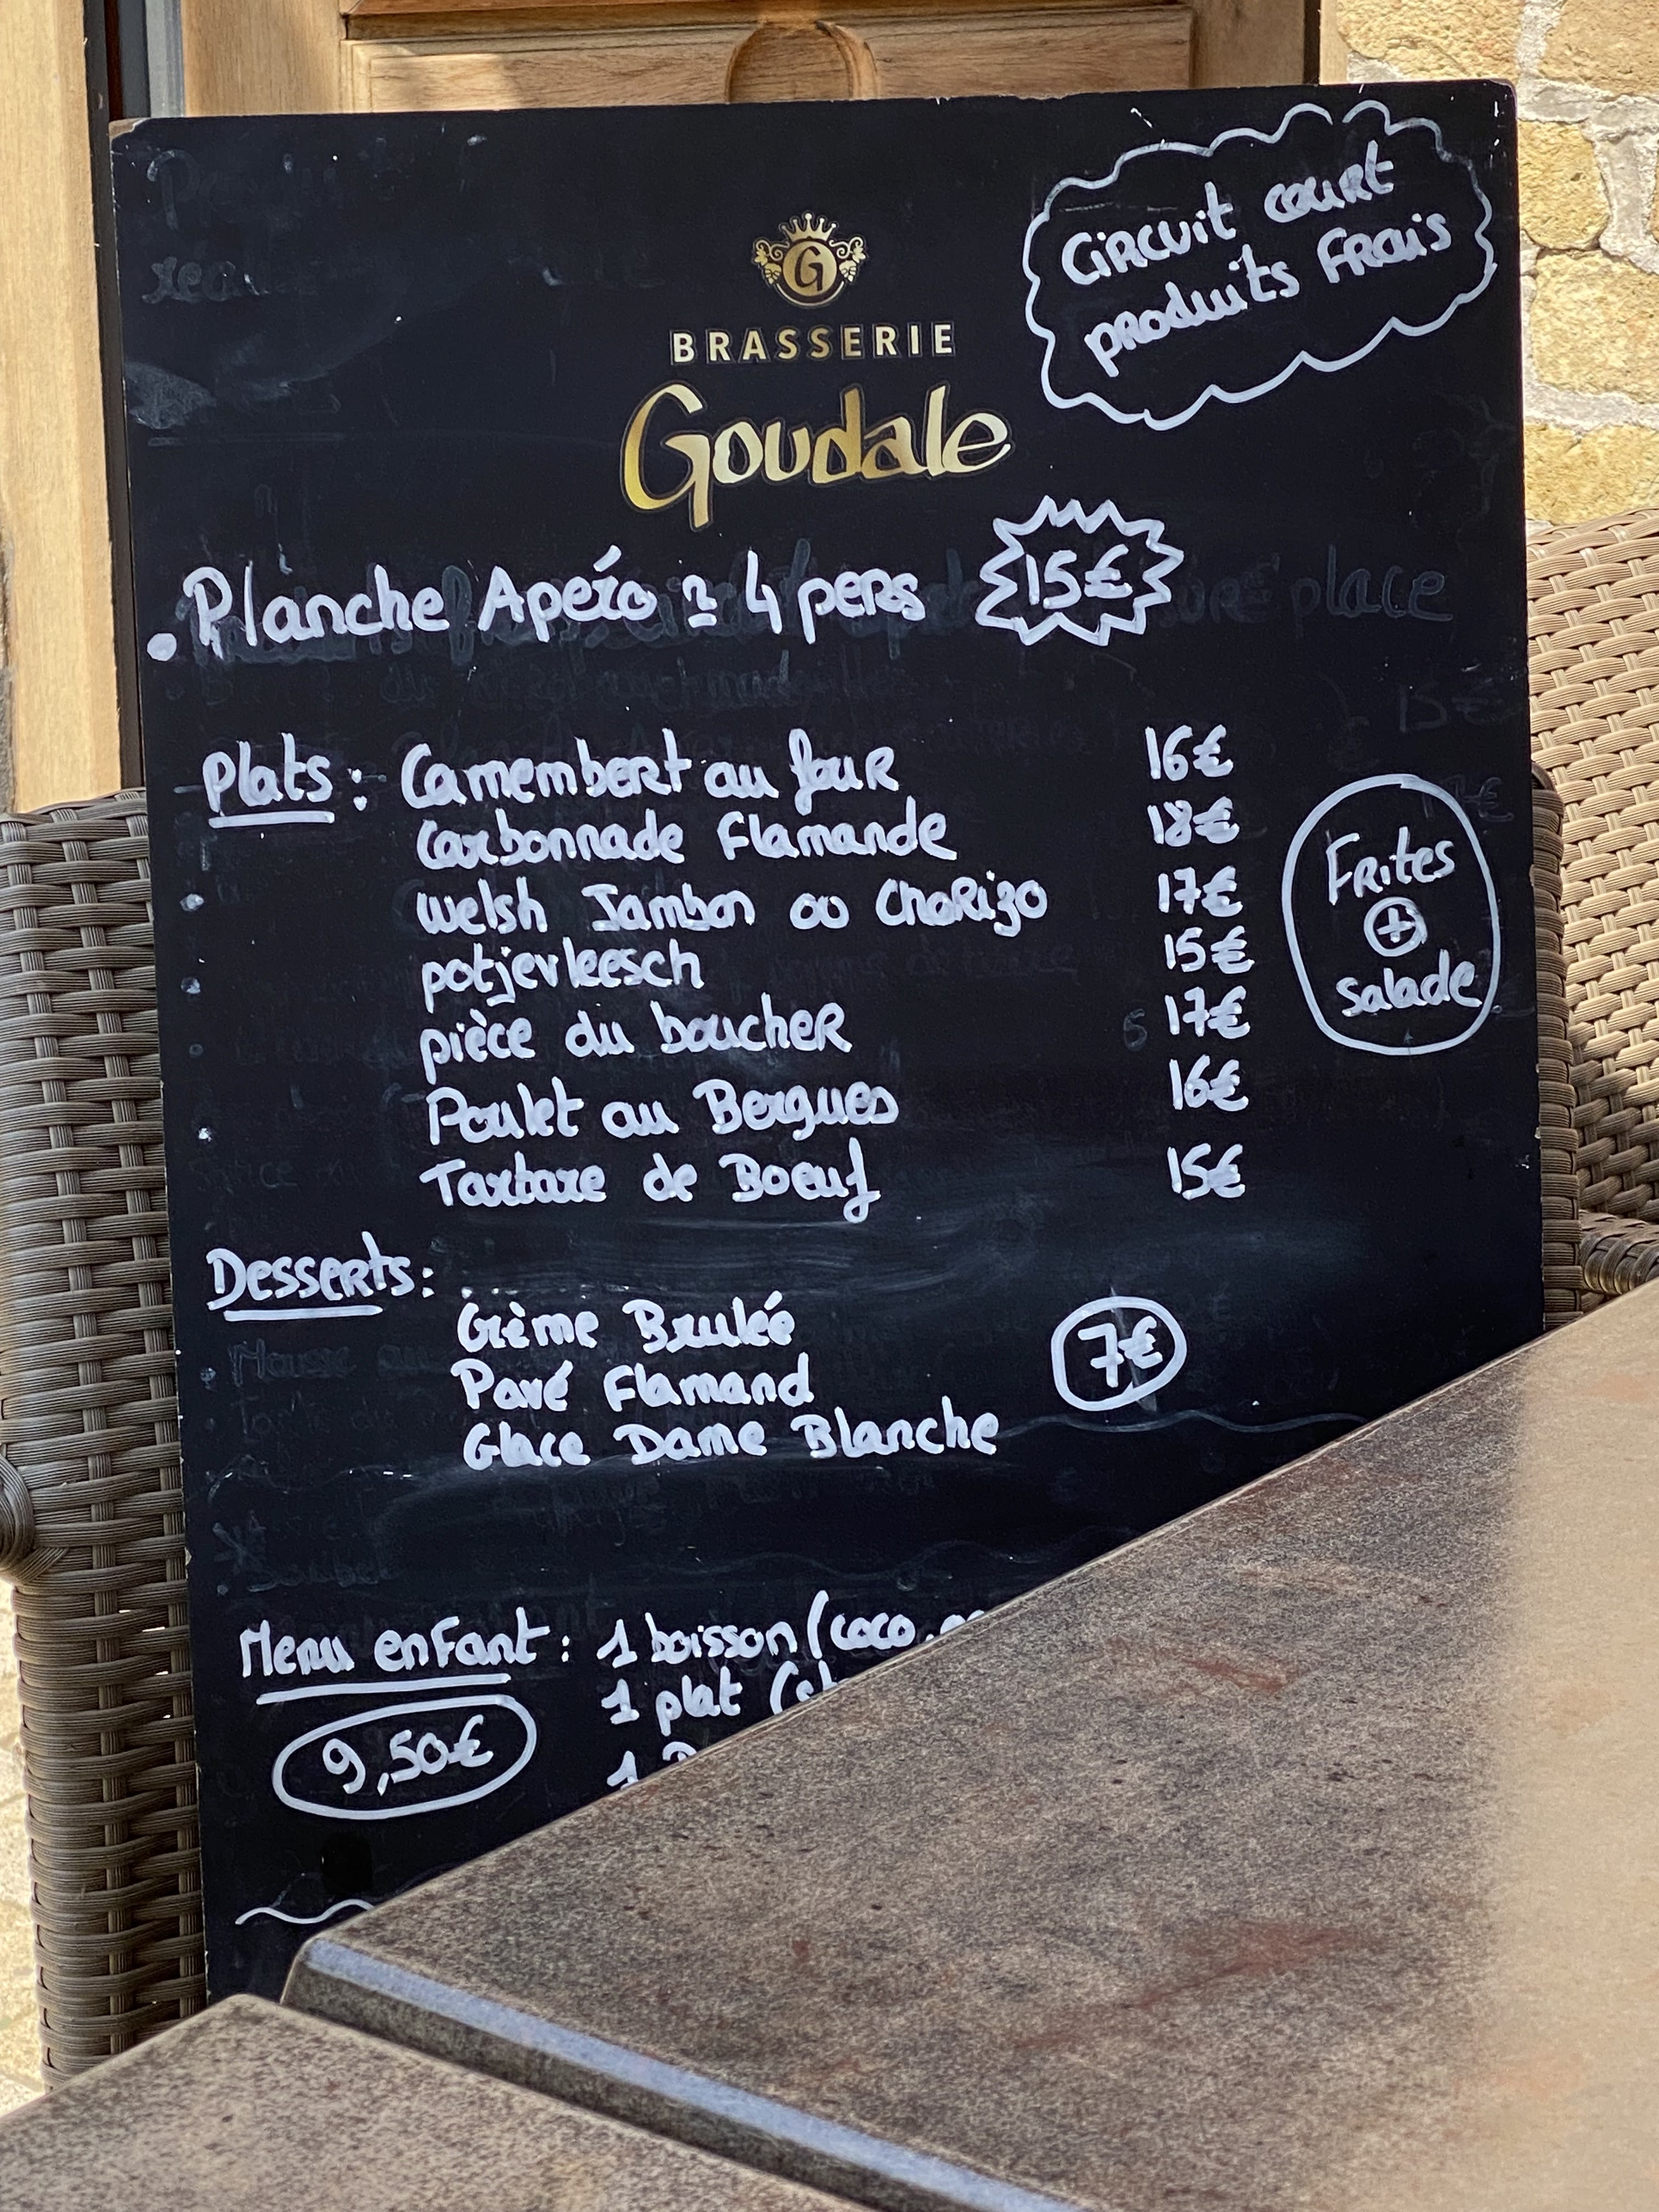 Circuit court
produits Frais
G
BRASSERIE
Goudale
. Planche Apéro 2 4 pers 15€
Plats : Camembert au four 16€
Carbonnade Flamande 18€
Welsh Jambon ou Chorizo 17€
potjevleesch 15€
pièce du boucher 17€
Poulet au Bergues 16€
Tartare de Boeuf 15€
Frites
+
salade
Desserts :
Crème Brulée
Pavé Flamand
Glace Dame Blanche
7€
Menu enfant : 1 boisson (coco
1 plat (
1
9,50€